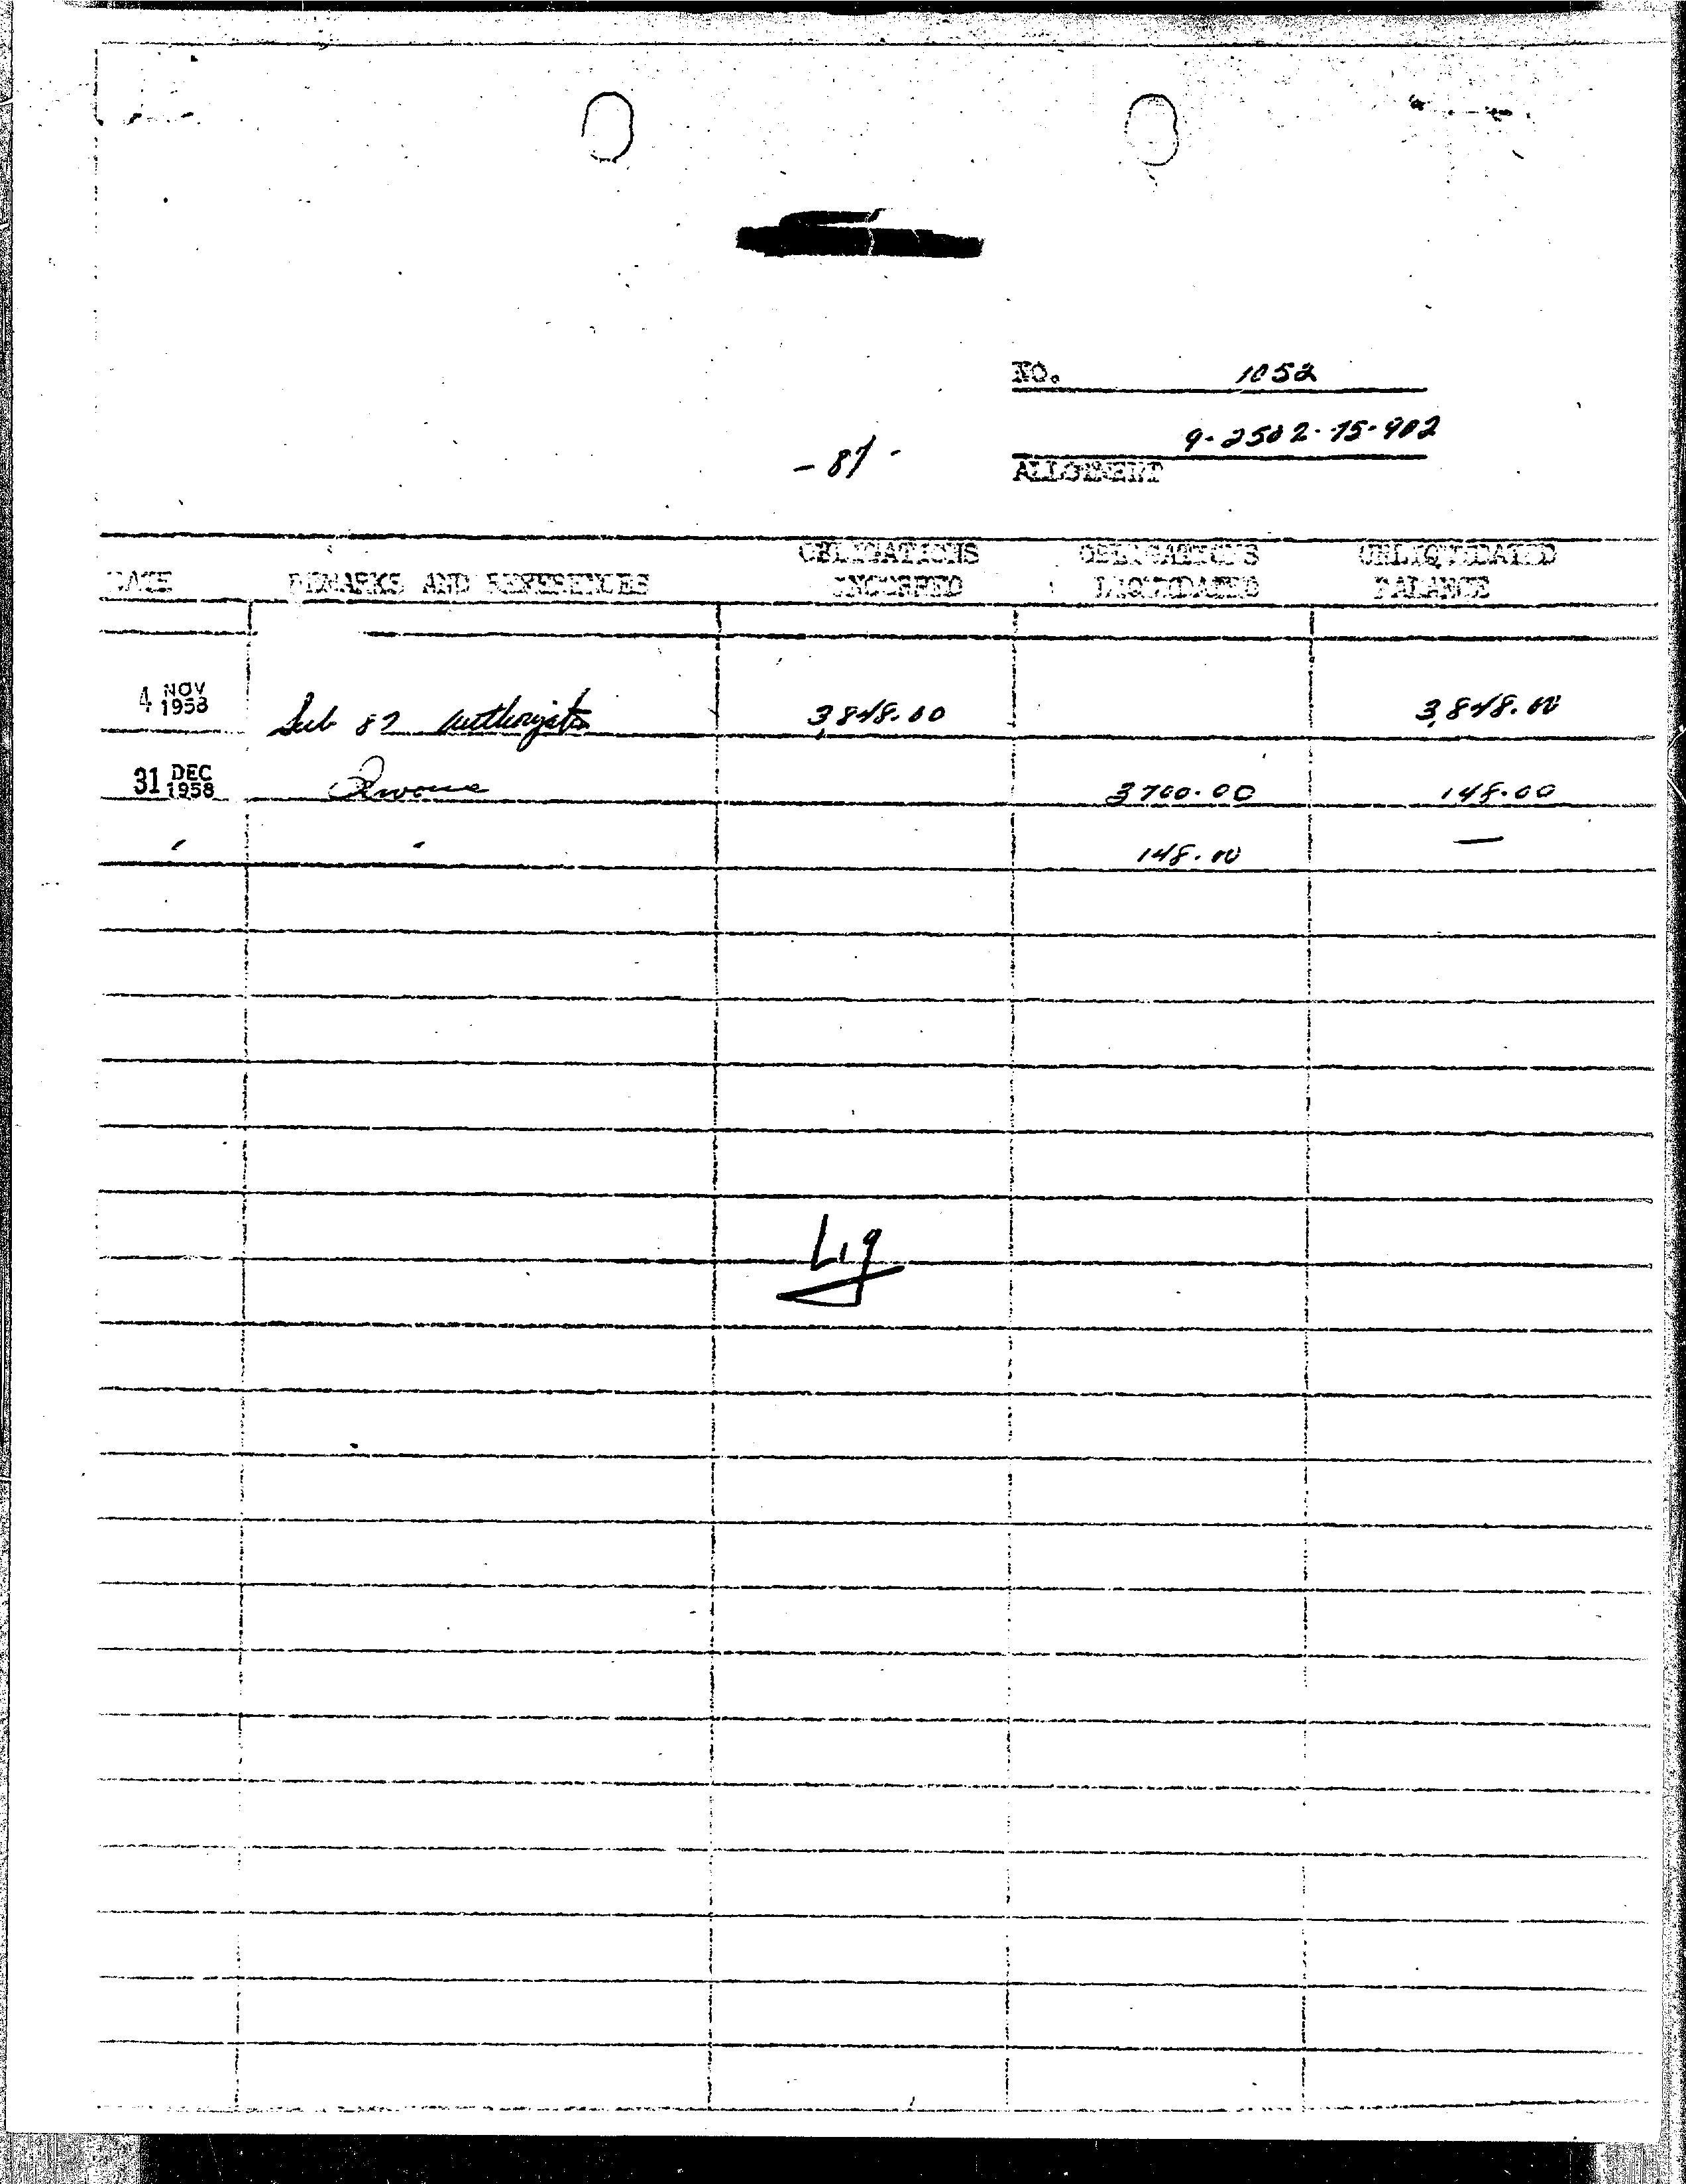 NO. 1052
9-2502-15-902
- 81 -
ALLOTMENT
OBLIGATIONS OBLIGATIONS UNLIQUIDATED
DATE REMARKS AND REFERENCES INCURRED LIQUIDATED BALANCE
4 NOV 1958 Sub 82 3,848.00 3,848.00
31 DEC 1958 3700.00 148.00
" " 148.00 —
Liq